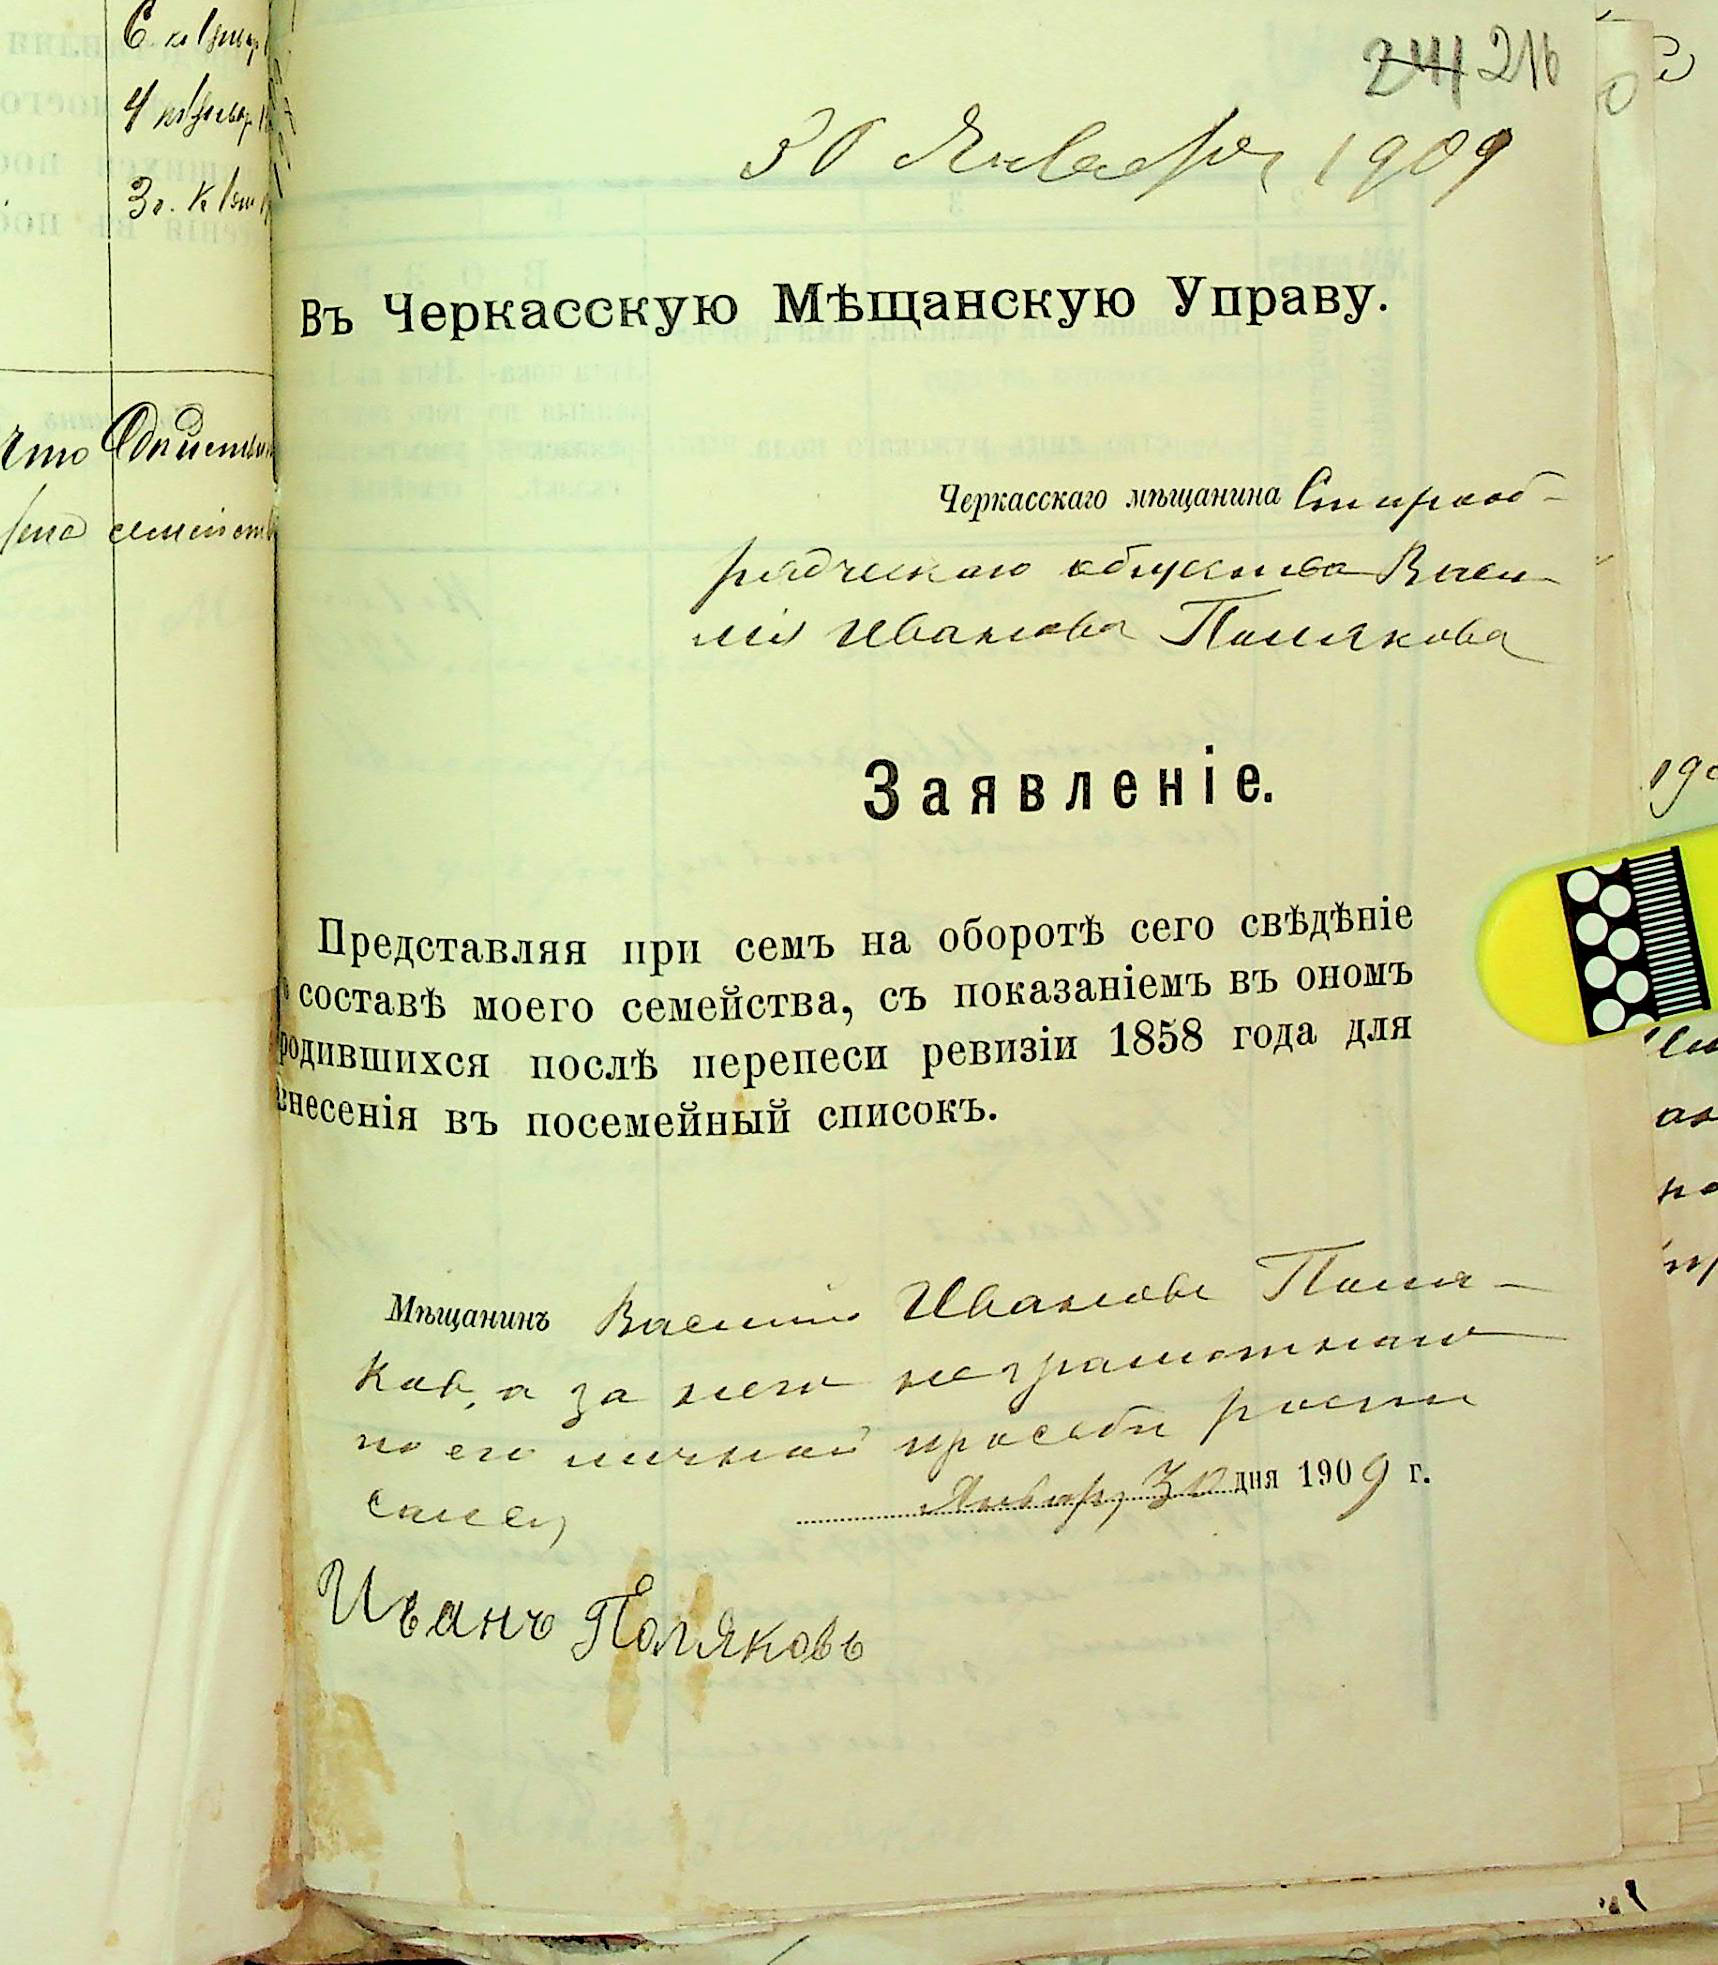 241 216
30 Января 1909
Въ Черкасскую Мѣщанскую Управу.
Черкасскаго мѣщанина Старооб-
рядческаго общества Васи-
лія Иванова Полякова
Заявленіе.
Представляя при семъ на оборотѣ сего свѣдѣніе
составѣ моего семейства, съ показаніемъ въ ономъ
родившихся послѣ перепеси ревизіи 1858 года для
внесенія въ посемейный списокъ.
Мѣщанинъ Василій Ивановъ Поля-
ковъ, а за него неграмотнаго
по его личной просьбѣ роспи
сался
Января 30 дня 1909 г.
Иванъ Поляковъ
что
семейств